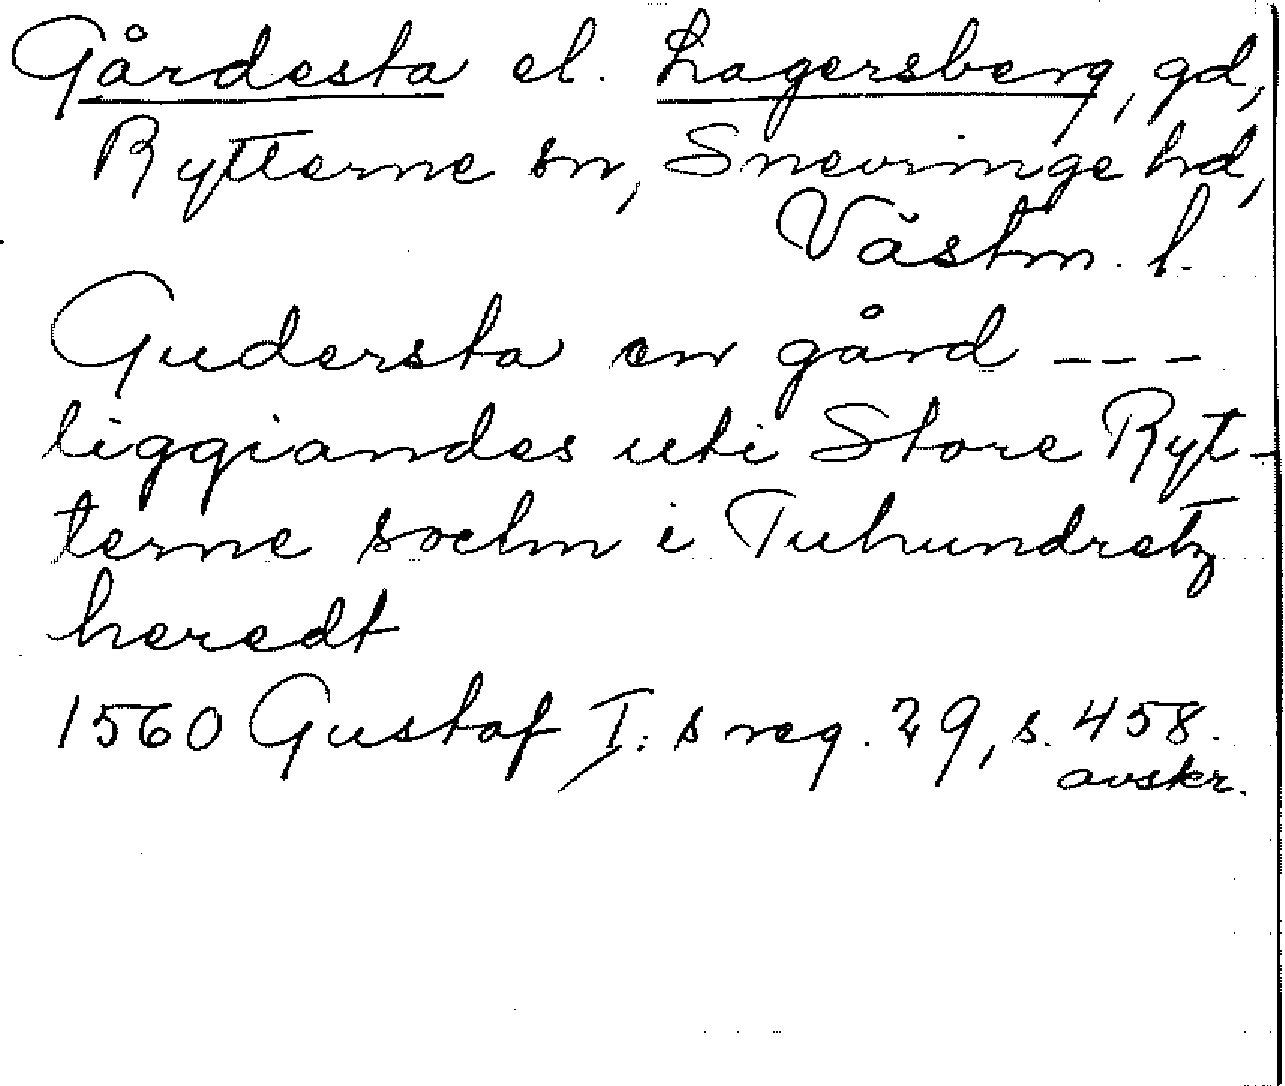 Gårdesta el. Lagersberg, gd,
Rytterne sn, Snevringe hd,
Västm. l.
Gudersta en gård ---
liggiandes uti Store Ryt-
terne sochn i Tuhundretz
heredt
1560 Gustaf I:s reg. 29, s. 458.
avskr.